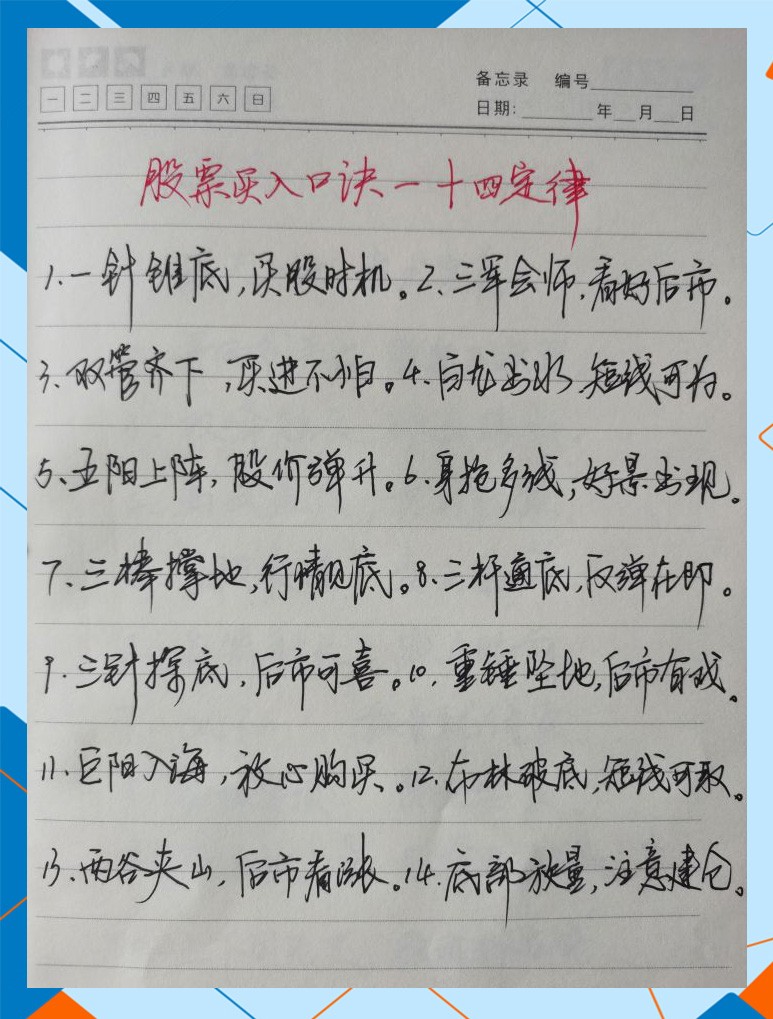 备忘录 编号
一 二 三 四 五 六 日
日期: 年 月 日
股票买入口诀一十四定律
1.一针锥底,买股时机。2.三军会师,看好后市。
3、双管齐下,买进不怕。4.白龙出水,短线可为。
5、五阳上阵,股价弹升。6、身抱多线,好景出现。
7、三棒撑地,行情见底。8.三杆通底,反弹在即。
9.三针探底,后市可喜。10,重锤坠地,后市有戏。
11.巨阳入海,放心购买。12.布林破底,短线可取。
13、两谷夹山,后市看涨。14.底部放量,注意建仓。